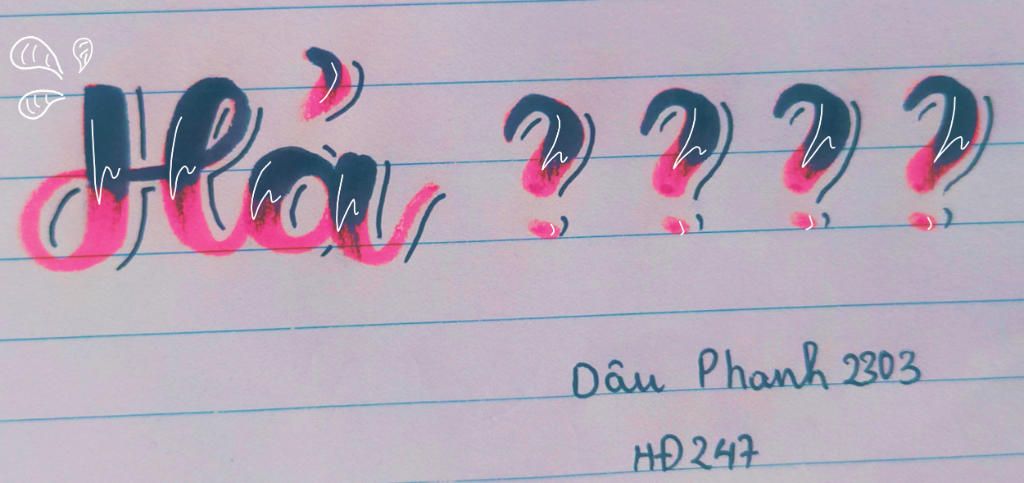 Hả????
Dâu Phanh 2303
HĐ247